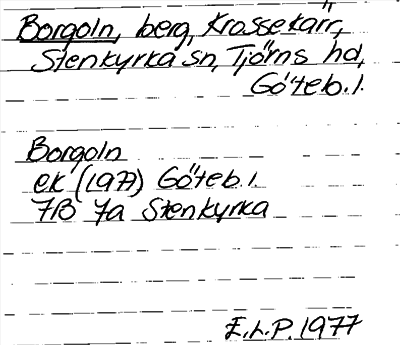 Borgoln, berg, Krossekärr,
Stenkyrka sn, Tjörns hd,
Göteb. l.
Borgoln
ek (1977) Göteb. l.
7B 7a Stenkyrka
E.L.P. 1977